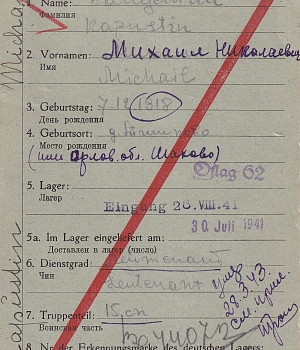 1. Name:
Фамилия
Kapustin
2. Vornamen: Михаил Николаевич
Имя
Michail
3. Geburtstag: 7.12.1918
День рождения
4. Geburtsort:
Место рождения
(или Орлов. обл. Шахово)
Oflag 62
5. Lager:
Лагер
Eingang 28.VIII.41
30. Juli 1941
5a. Im Lager eingeliefert am:
Доставлен в лагерь (число)
6. Dienstgrad: Лейтенант
Чин
Leutenant
умер
28.3.43
7. Truppenteil: 15
Воинская часть
8. Nr. der Erkennungsmarke des deutschen Lagers:
Kapustin